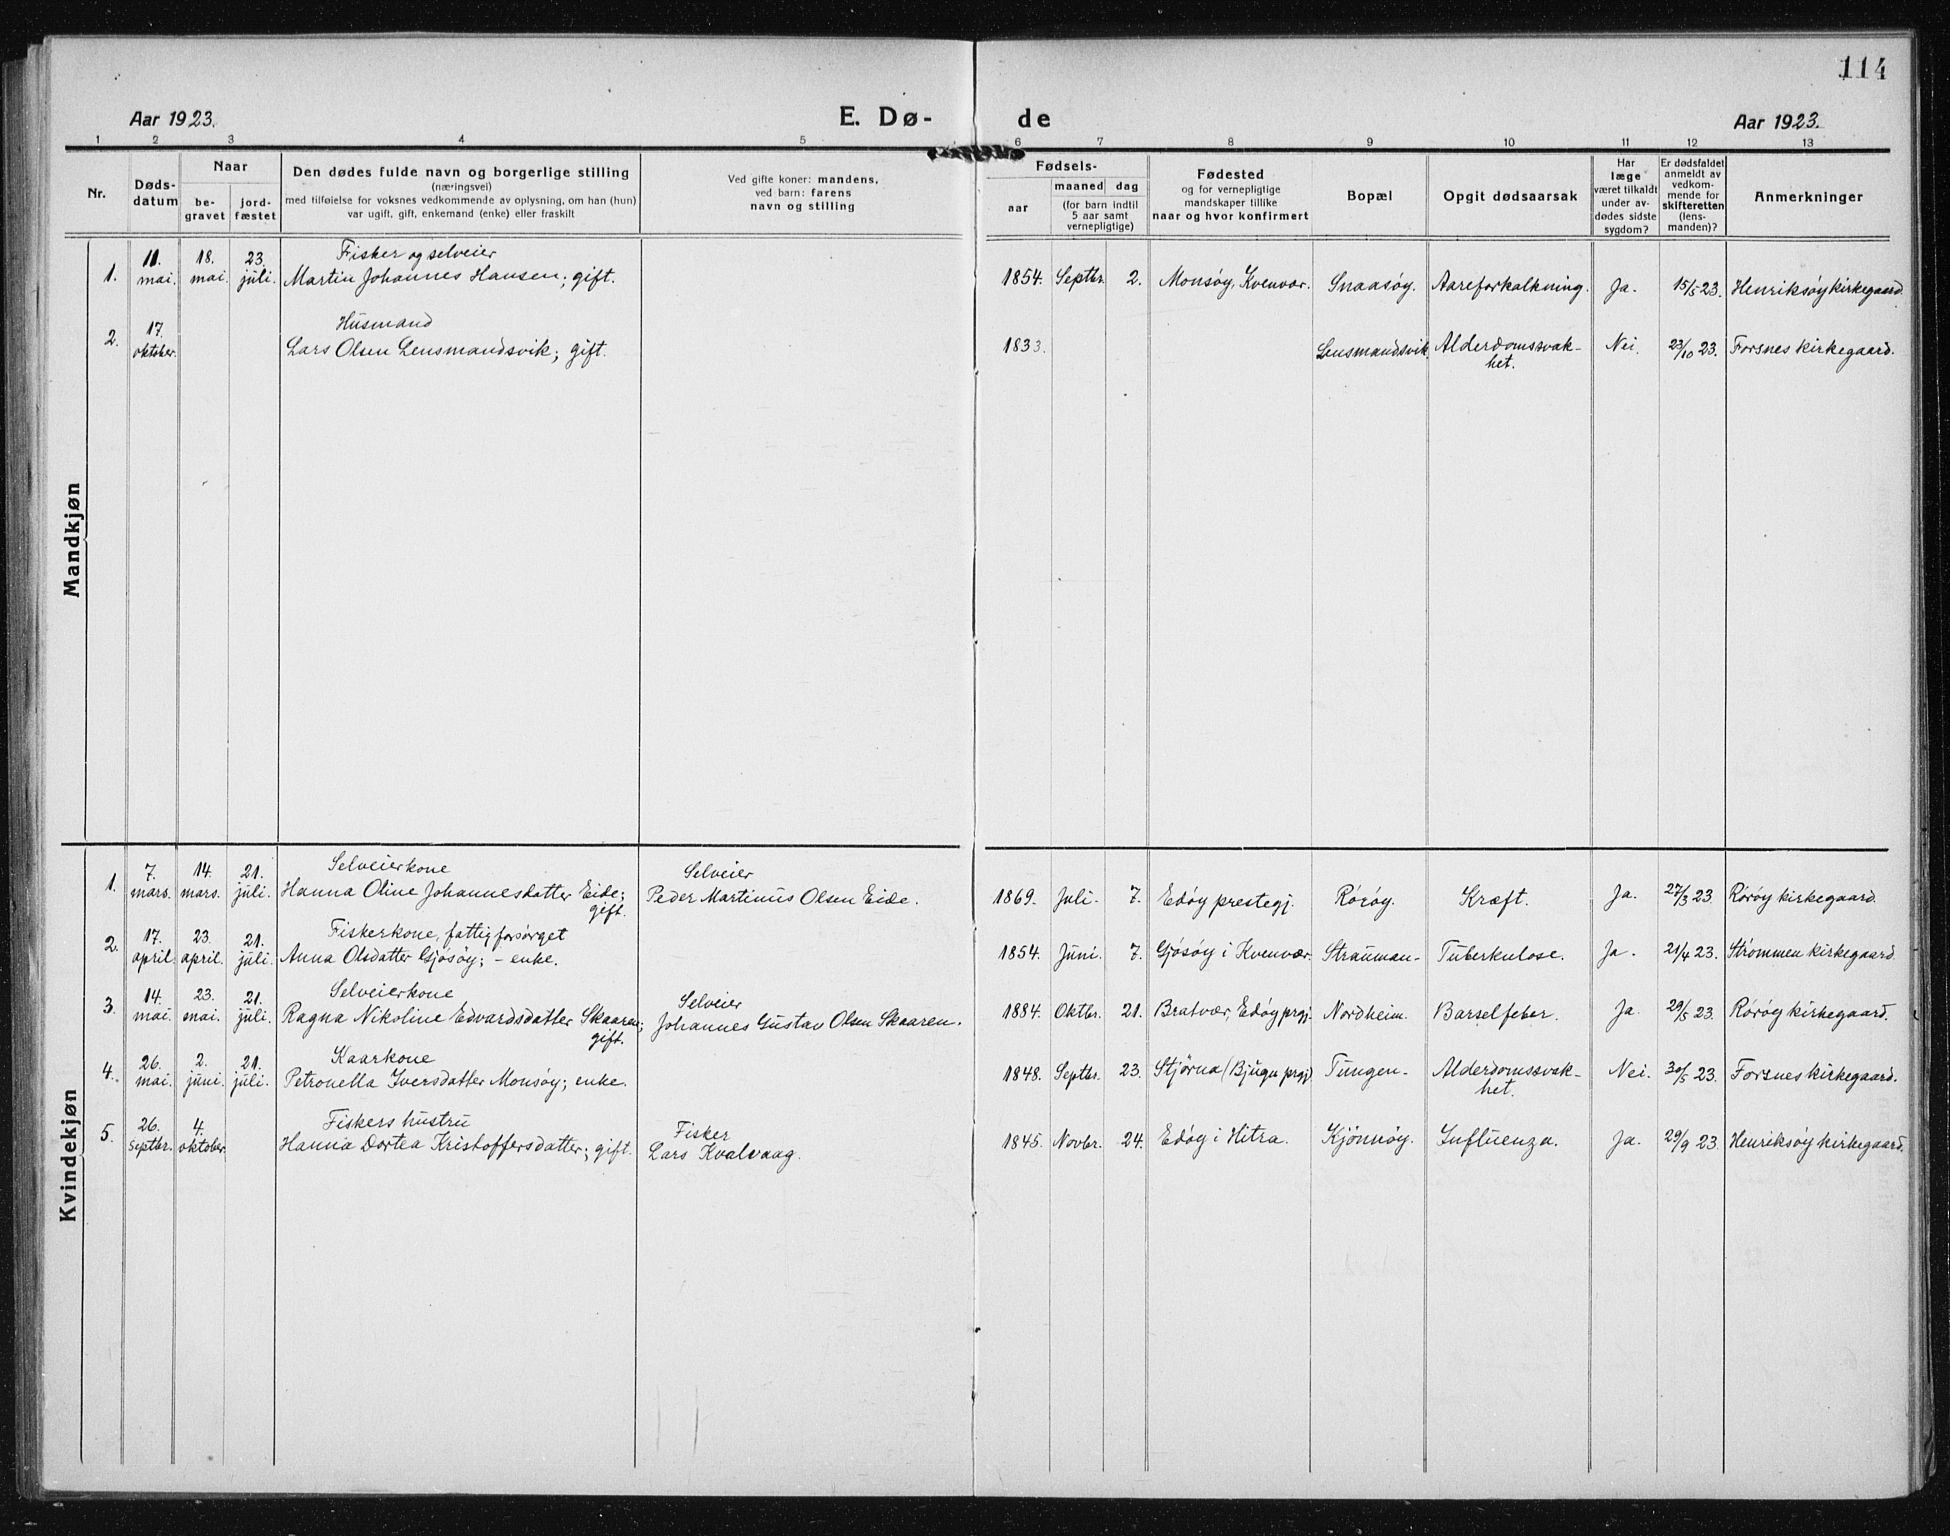 114
Aar 1923.
E. Dø-
de
Aar 1923.
1 2 3 4 5 6 7 8 9 10 11 12 13
Nr.
Døds-
datum
Naar
be-
gravet
jord-
fæstet
Den dødes fulde navn og borgerlige stilling
(næringsvei)
med tilføielse for voksnes vedkommende av oplysning, om han (hun)
var ugift, gift, enkemand (enke) eller fraskilt
Ved gifte koner: mandens,
ved barn: farens
navn og stilling
Fødsels-
aar
maaned dag
(for barn indtil
5 aar samt
vernepligtige)
Fødested
og for vernepligtige
mandskaper tillike
naar og hvor konfirmert
Bopæl
Opgit dødsaarsak
Har
læge
været tilkaldt
under av-
dødes sidste
sygdom?
Er dødsfaldet
anmeldt av
vedkom-
mende for
skifteretten
(lens-
manden)?
Anmerkninger
Mandkjøn
11. 18. 23. Fisker og selveier
1. mai. mai. juli. Martin Johannes Hansen; gift. 1854. Septbr. 2. Monsøy, Kvenvær. Snaasøy. Aareforkalkning. Ja. 15/5 23. Henriksøy kirkegaard.
17. Husmand
2. oktober. Lars Olsen Lensmandsvik; gift. 1833. Lensmandsvik Alderdomssvak- Nei. 23/10 23. Forsnes kirkegaard.
het.
Kvindekjøn
7. 14. 21. Selveierkone Selveier
1. mars. mars. juli. Hanna Oline Johannesdatter Eide; Peder Martinus Olsen Eide. 1869. Juli. 7. Edøy prestegj. Rörøy. Kræft. Ja. 27/3 23. Rörøy kirkegaard.
gift.
17. 23. 21. Fiskerkone, fattigforsörget
2. april. april. juli. Anna Olsdatter Gjøsøy; - enke. 1854. Juni. 7. Gjøsøy i Kvenvær. Strauman- Tuberkulose. Ja. 21/4 23. Strömmen kirkegaard.
14. 23. 21. Selveierkone Selveier
3. mai. mai. juli. Ragna Nikoline Edvardsdatter Skaaren; Johannes Gustav Olsen Skaaren. 1884. Oktbr. 21. Bratvær, Edøy prgj. Nordheim. Barselfeber. Ja. 29/5 23. Rörøy kirkegaard.
gift.
26. 2. 21. Kaarkone
4. mai. juni. juli. Petronella Iversdatter Monsøy; enke. 1848. Septbr. 23. Stjörna (Bjugn prgj) Tungen- Alderdomssvak- Nei. 30/5 23. Forsnes kirkegaard.
het.
26. 4. Fiskers hustru Fisker
5. Septbr. oktober. Hanna Dortea Kristoffersdatter; gift. Lars Kvalvaag. 1845. Novbr. 24. Edøy i Hitra. Kjönnøy. Influenza. Ja. 29/9 23. Henriksøy kirkegaard.